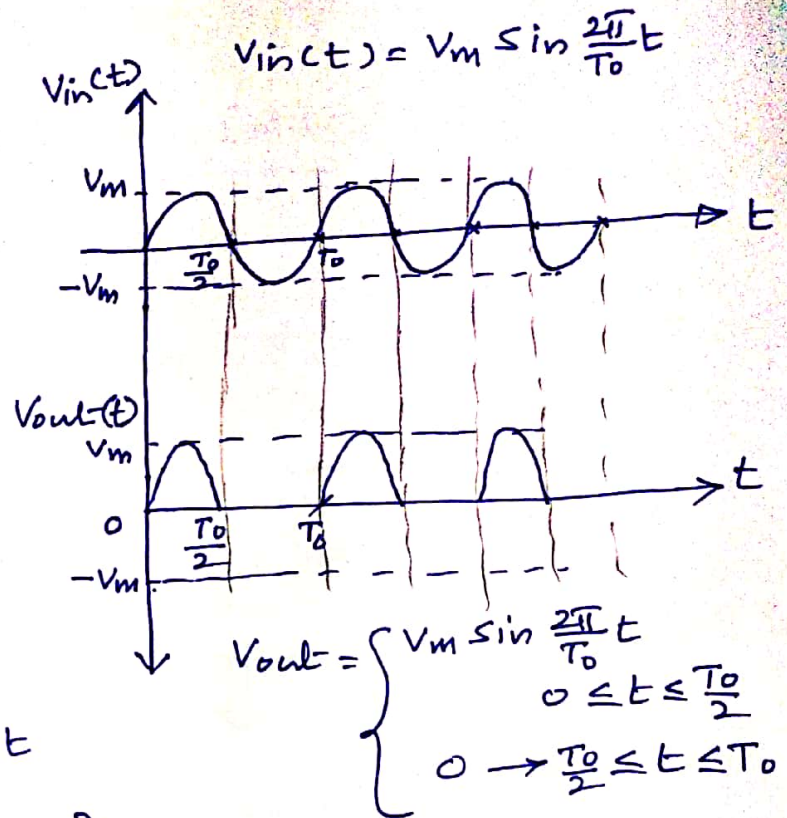 Vin(t) = Vm Sin 2π/T0 t
Vin(t)
Vm
t
T0/2
T0
-Vm
Vout(t)
Vm
t
0
T0/2
T0
-Vm
Vout = { Vm Sin 2π/T0 t
0 ≤ t ≤ T0/2
t
0 → T0/2 ≤ t ≤ T0